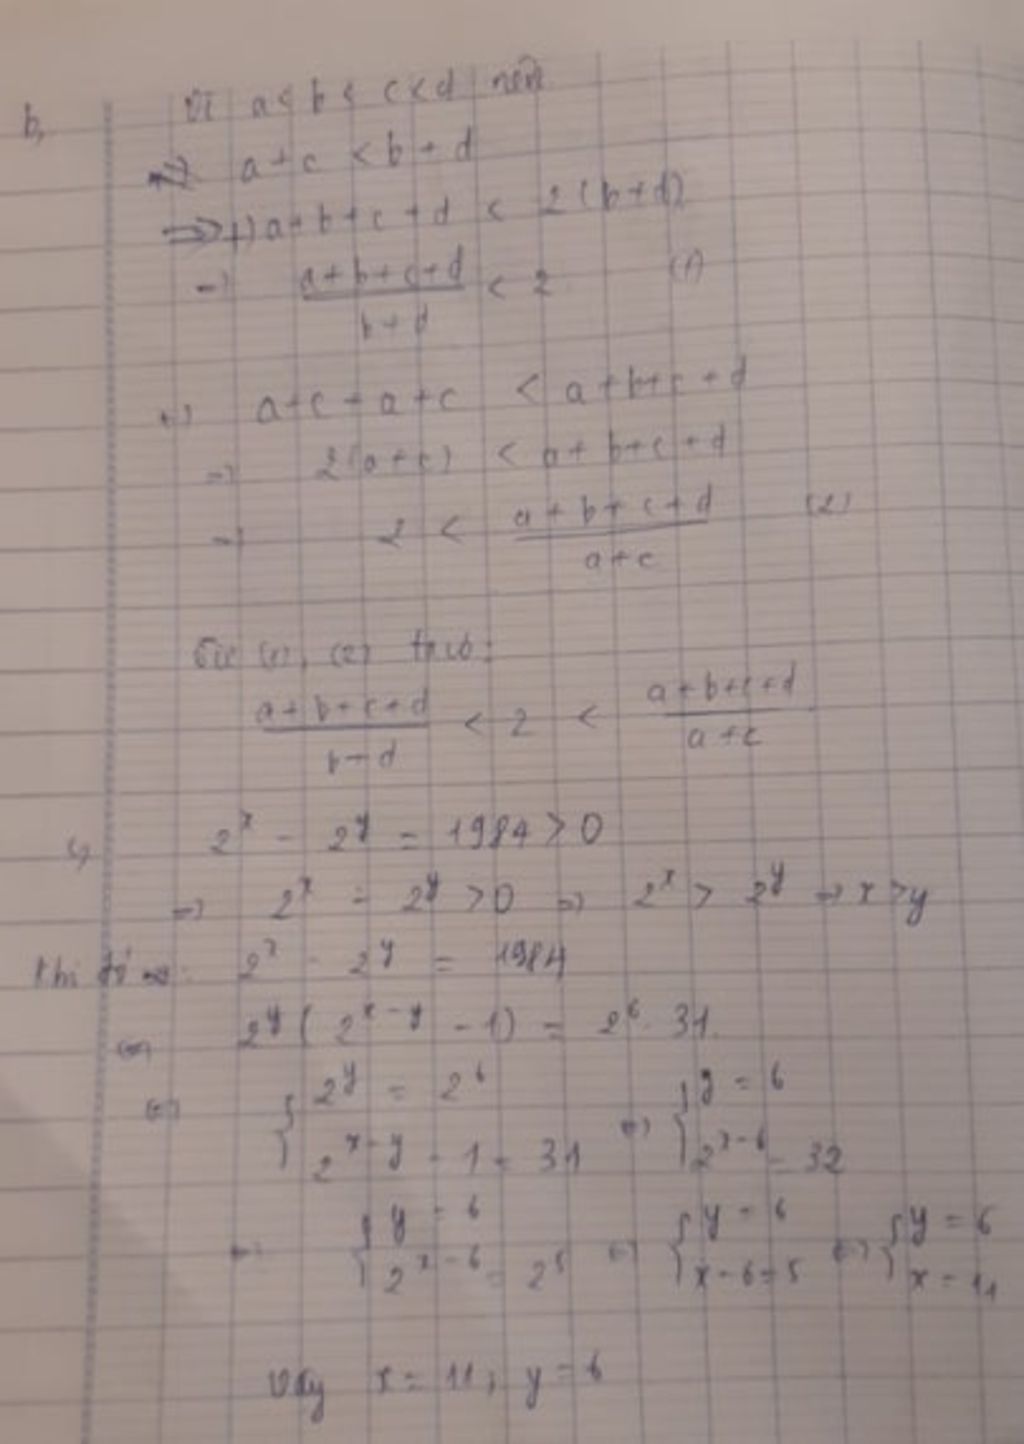 b, Vì a < b < c < d nên
=> a + c < b + d
=> +) a + b + c + d < 2(b+d)
=> \frac{a+b+c+d}{b+d} < 2 (1)
+) a + c + a + c < a + b + c + d
=> 2(a+c) < a + b + c + d
=> 2 < \frac{a+b+c+d}{a+c} (2)
(1), (2)
\frac{a+b+c+d}{b+d} < 2 < \frac{a+b+c+d}{a+c}
c, 2^x - 2^y = 1984 > 0
=> 2^x - 2^y > 0 => 2^x > 2^y => x > y
Khi đó 2^x - 2^y = 1984
<=> 2^y (2^{x-y} - 1) = 2^6. 31.
<=> { 2^y = 2^6 ; 2^{x-y} - 1 = 31 <=> { y = 6 ; 2^{x-6} = 32
<=> { y = 6 ; 2^{x-6} = 2^5 <=> { y = 6 ; x-6=5 <=> { y = 6 ; x = 11
Vậy x = 11 ; y = 6